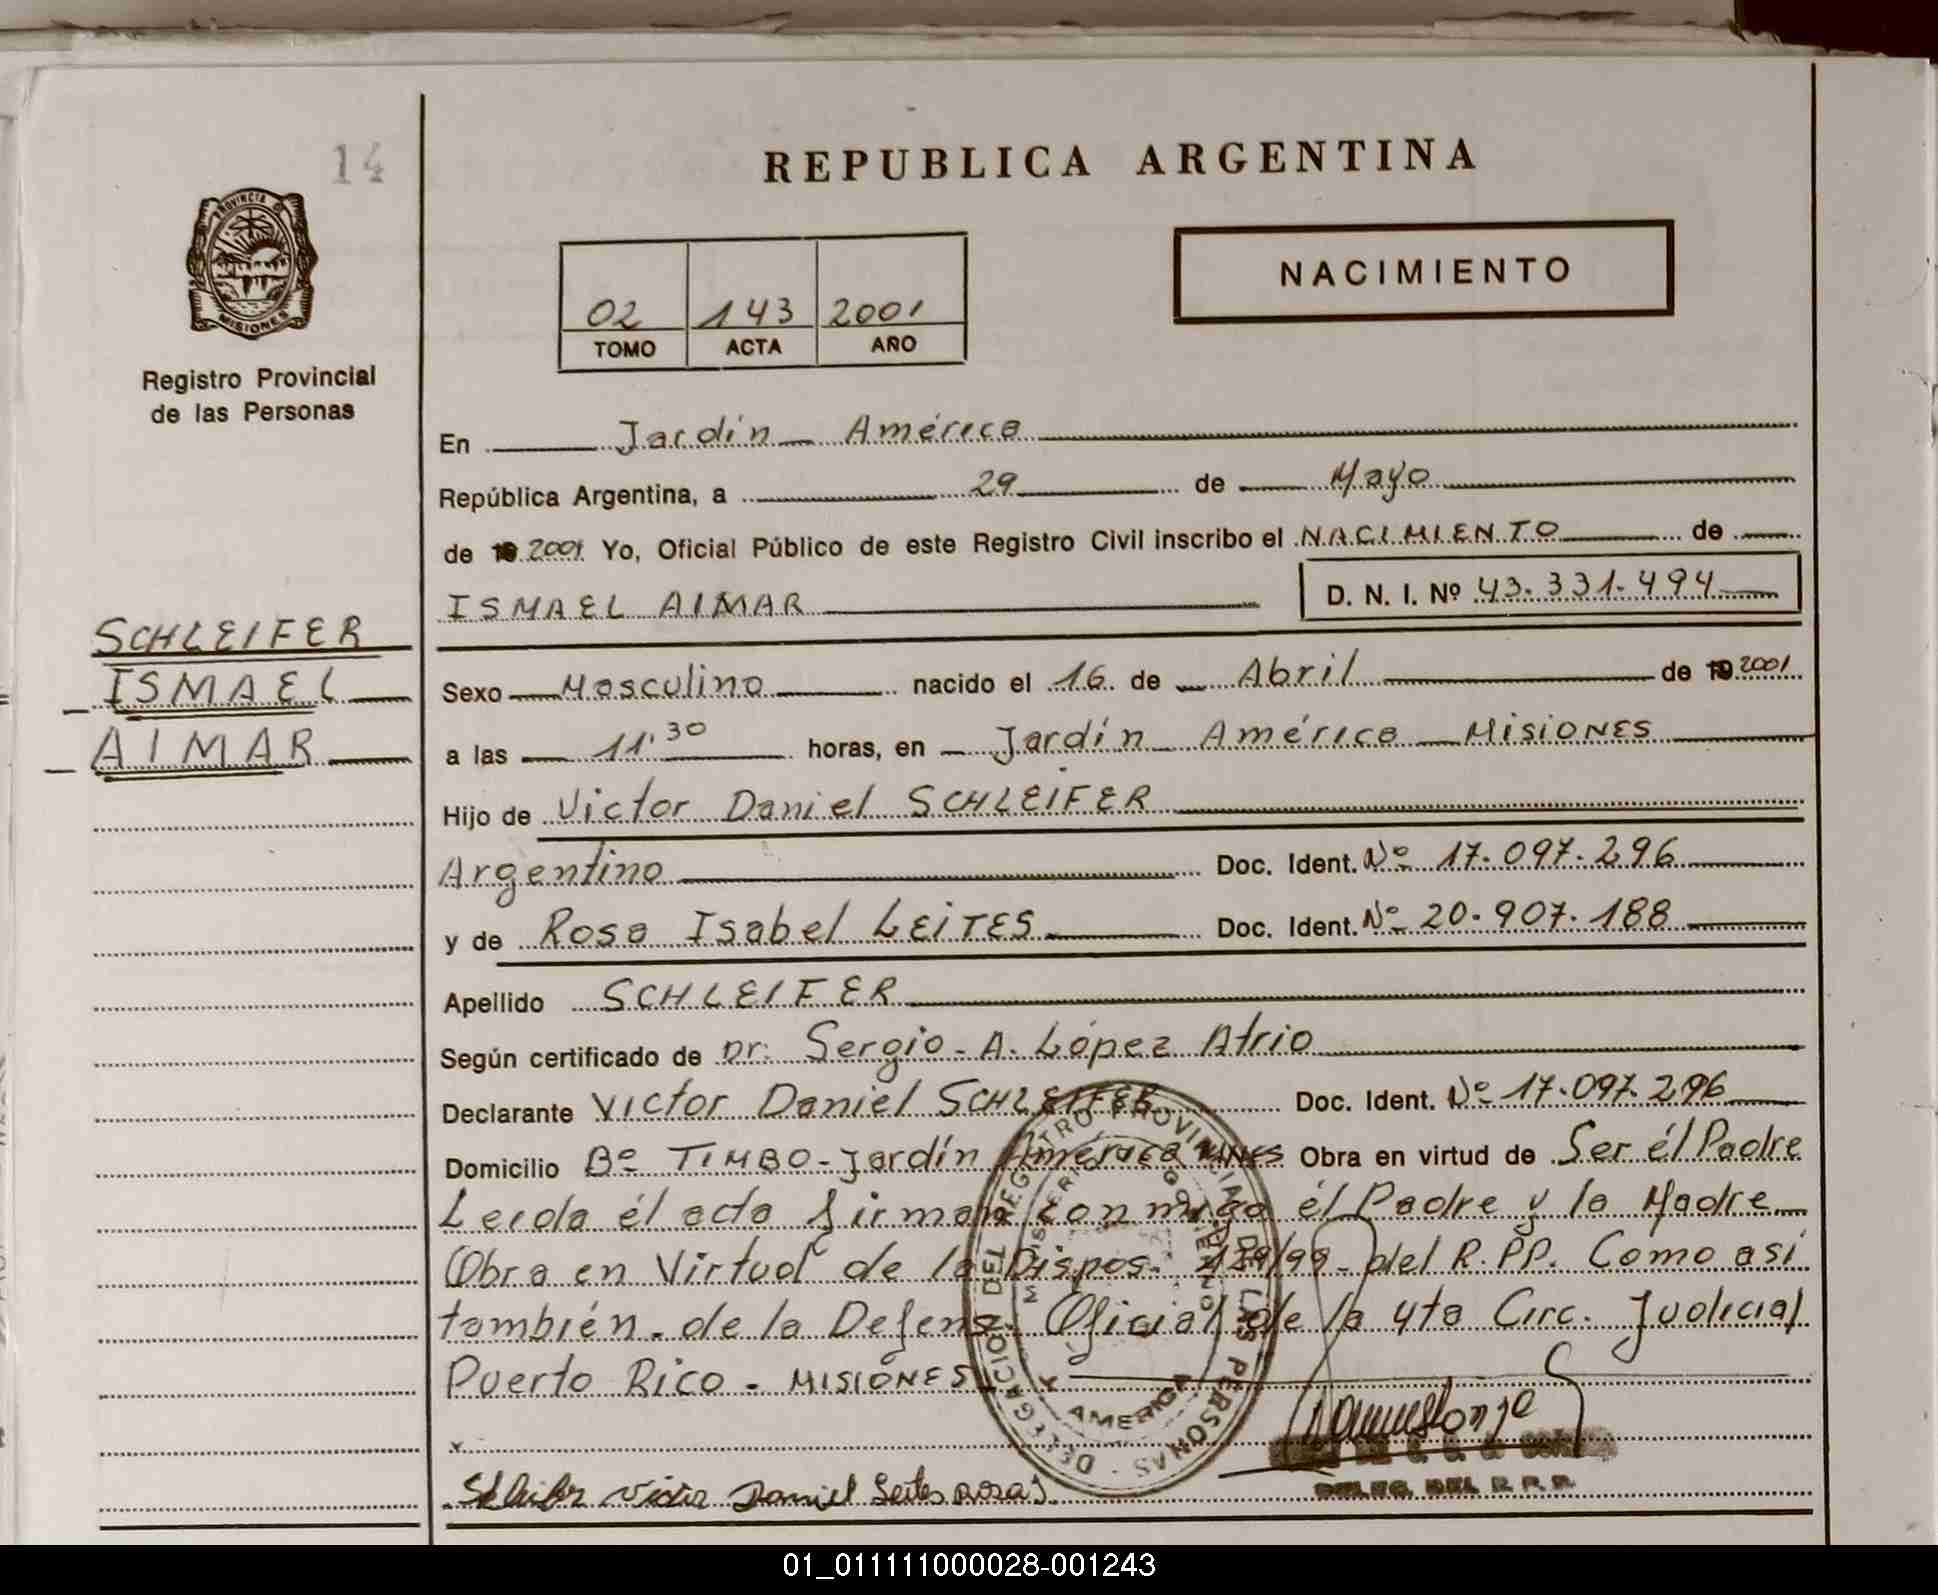 14
REPUBLICA ARGENTINA
PROVINCIA DE
MISIONES
NACIMIENTO
02 143 2001
TOMO ACTA AÑO
Registro Provincial
de las Personas
En Jardín América
República Argentina, a 29 de Mayo
de 19 2001 Yo, Oficial Público de este Registro Civil inscribo el NACIMIENTO de
ISMAEL AIMAR D. N. I. Nº 43.331.494
SCHLEIFER
ISMAEL
AIMAR
Sexo Masculino nacido el 16 de Abril de 19 2001
a las 11.30 horas, en Jardín América Misiones
Hijo de Victor Daniel SCHLEIFER
Argentino Doc. Ident. Nº 17.097.296
y de Rosa Isabel LEITES Doc. Ident. Nº 20.907.188
Apellido SCHLEIFER
Según certificado de Dr: Sergio A. López Atrio
Declarante Victor Daniel SCHLEIFER Doc. Ident. Nº 17.097.296
Domicilio Bº TIMBO - Jardín América MNES Obra en virtud de Ser él Padre
Leida él acta firman conmigo él Padre y la Madre
Obra en Virtud de la Dispos. /99 del R.PP. Como asi
también de la Defens. Oficial de la 4ta Circ. Judicial
Puerto Rico - MISIONES
DELEGACION DEL REGISTRO PROVINCIAL DE LAS PERSONAS
AMERICA
Victor Daniel Leites Rosa I
DELEG. DEL R. P. P.
01_011111000028-001243